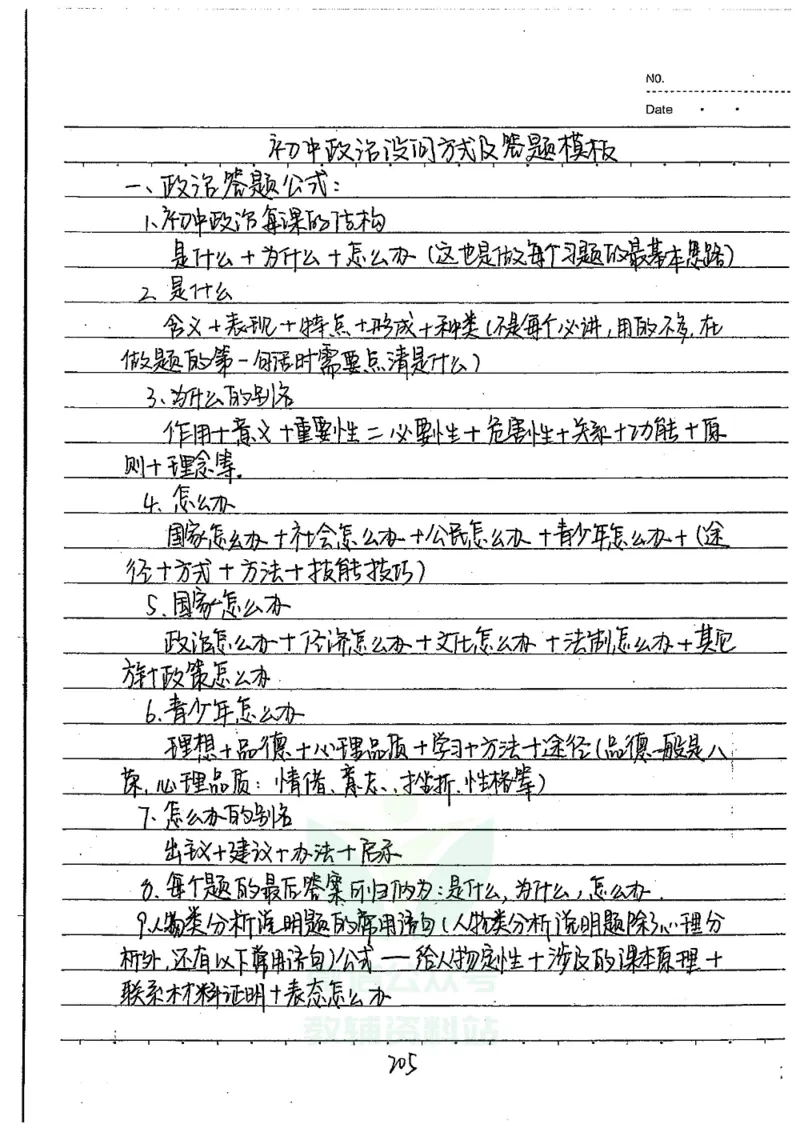 NO.
Date
初中政治设问方式及答题模板
一、政治答题公式:
1、初中政治每课的结构
是什么+为什么+怎么办(这也是做每个习题的最基本思路)
2、是什么
含义+表现+特点+形成+种类(不是每个必讲,用的不多,在
做题的第一句话时需要点清是什么)
3、为什么的别名
作用+意义+重要性=必要性+危害性+关系+功能+原
则+理念等。
4、怎么办
国家怎么办+社会怎么办+公民怎么办+青少年怎么办+(途
径+方式+方法+技能技巧)
5、国家怎么办
政治怎么办+经济怎么办+文化怎么办+法制怎么办+其它
方针政策怎么办
6、青少年怎么办
理想+品德+心理品质+学习+方法+途径(品德一般是八
荣,心理品质:情绪、意志、挫折、性格等)
7、怎么办的别名
出主议+建议+办法+启示
8、每个题的最后答案可归纳为:是什么,为什么,怎么办.
9、人物类分析说明题的常用语句(人物类分析说明题除了心理分
析外,还有以下常用语句)公式——给人物定性+涉及的课本原理+
联系材料证明+表态怎么办
教辅资料站
205